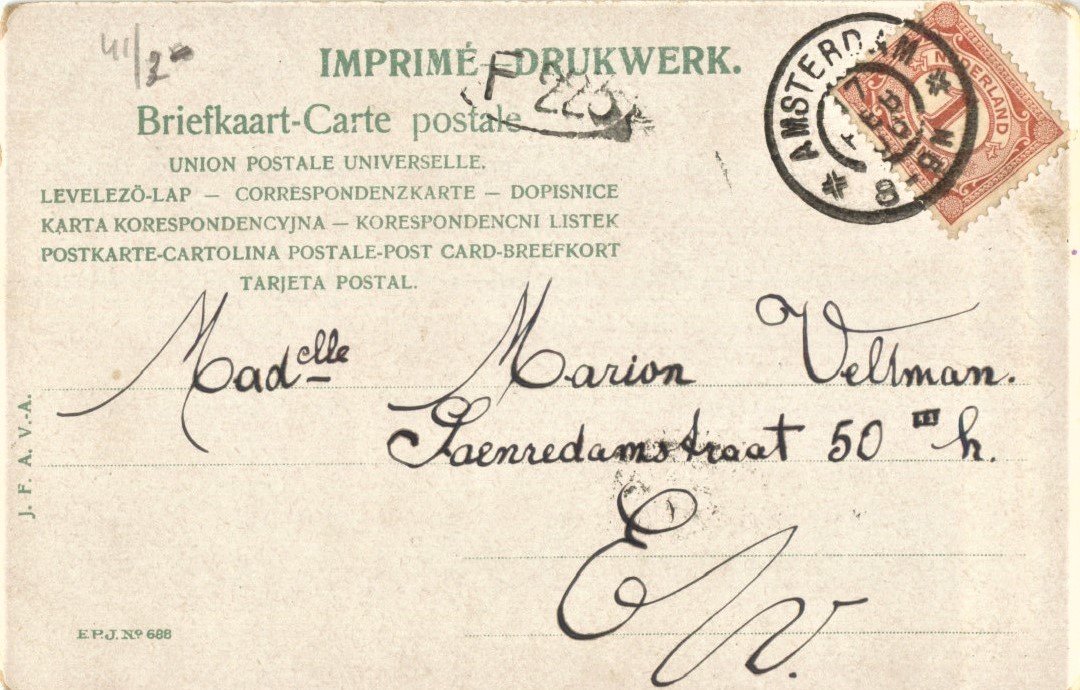 41/2
IMPRIMÉ-DRUKWERK.
F 225
Briefkaart-Carte postale
UNION POSTALE UNIVERSELLE.
LEVELEZÖ-LAP — CORRESPONDENZKARTE — DOPISNICE
KARTA KORESPONDENCYJNA — KORESPONDENCNI LISTEK
POSTKARTE-CARTOLINA POSTALE-POST CARD-BREEFKORT
TARJETA POSTAL.
AMSTERDAM
8
NEDERLAND
1
Madelle Marion Veltman.
Saenredamstraat 50 III h.
E/V.
J. F. A. V.-A.
E.P.J. No 688